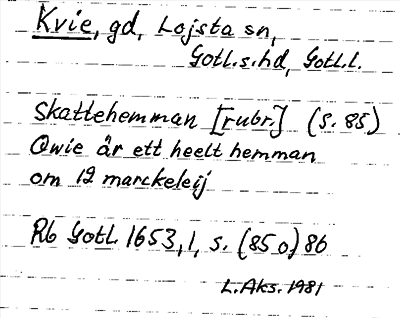 Kvie, gd, Lojsta sn,
Gotl.s.hd, Gotl.l.
Skattehemman [rubr.] (S. 85)
Qwie är ett heelt hemman
om 12 marckeleij
Rb Gotl 1653,1, s. (85 o) 86
L.Aks. 1981